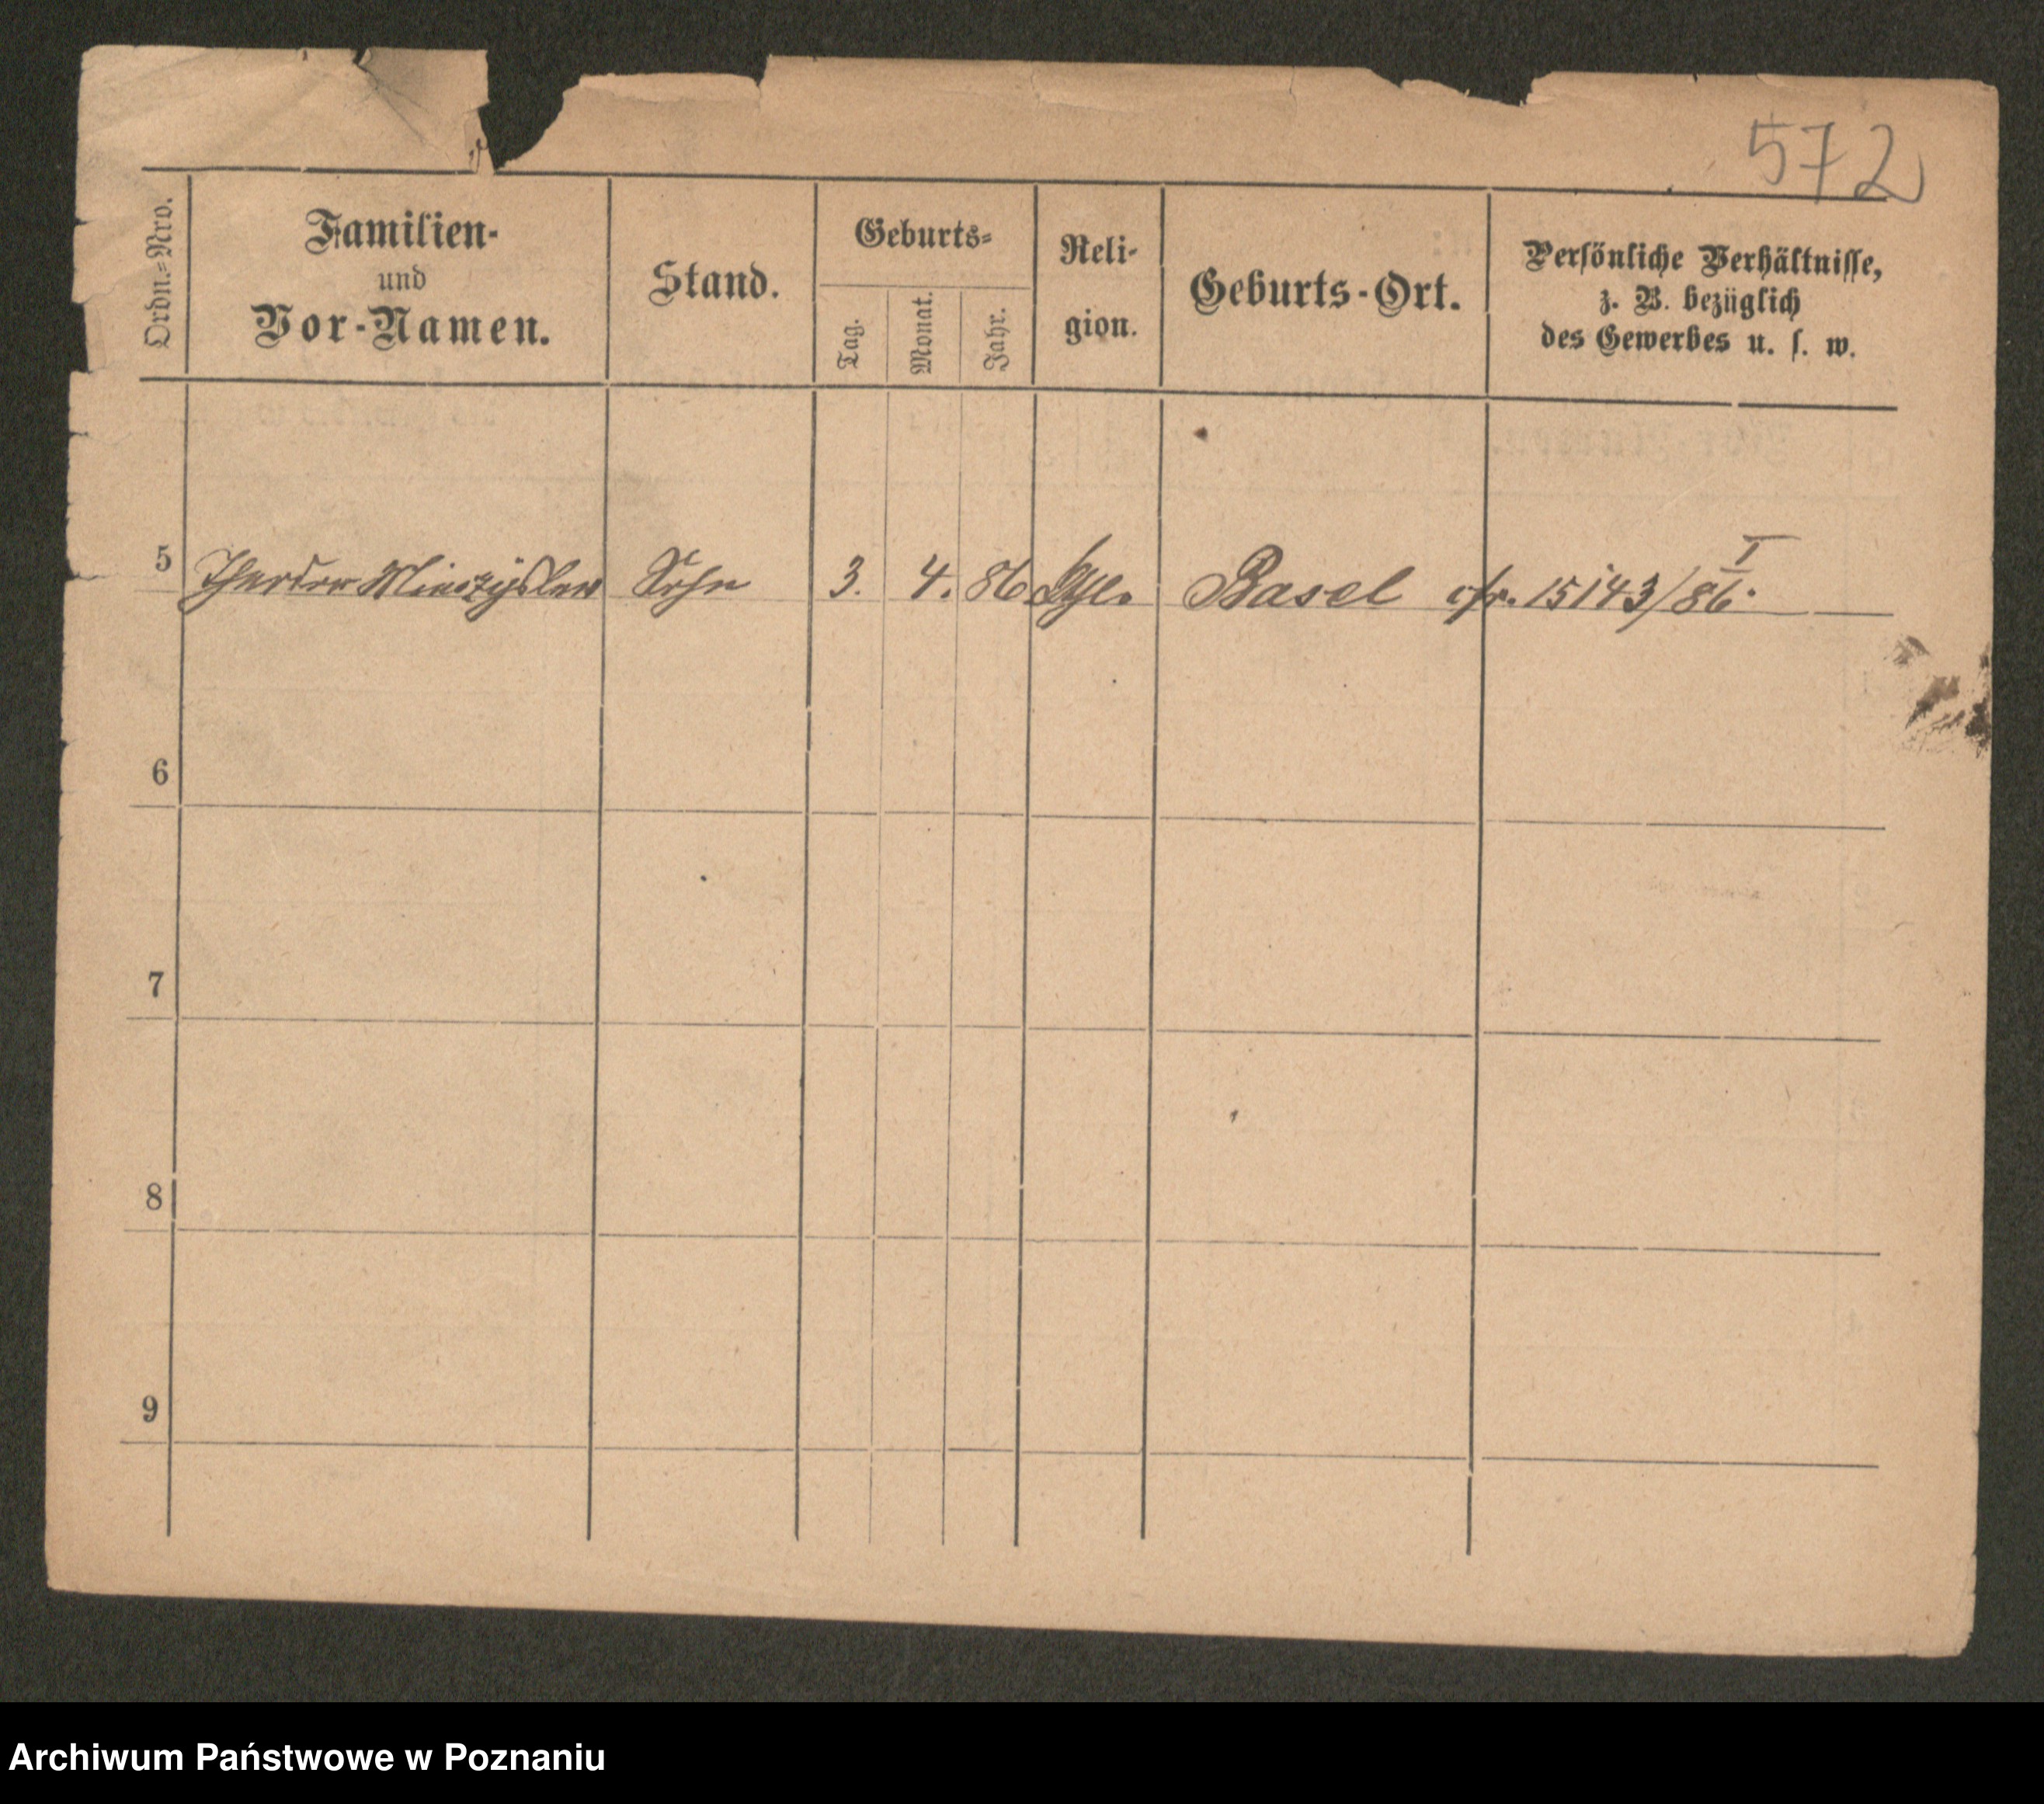 572
Ordn.=Nro.
Familien-
und
Vor-Namen.
Stand.
Geburts=
Tag.
Monat.
Jahr.
Reli-
gion.
Geburts-Ort.
Persönliche Verhältnisse,
z. B. bezüglich
des Gewerbes u. s. w.
5 Theodor Mieczyslaw Sohn 3. 4. 86 Basel cfr. 15143/86. I
6
7
8
9
Archiwum Państwowe w Poznaniu